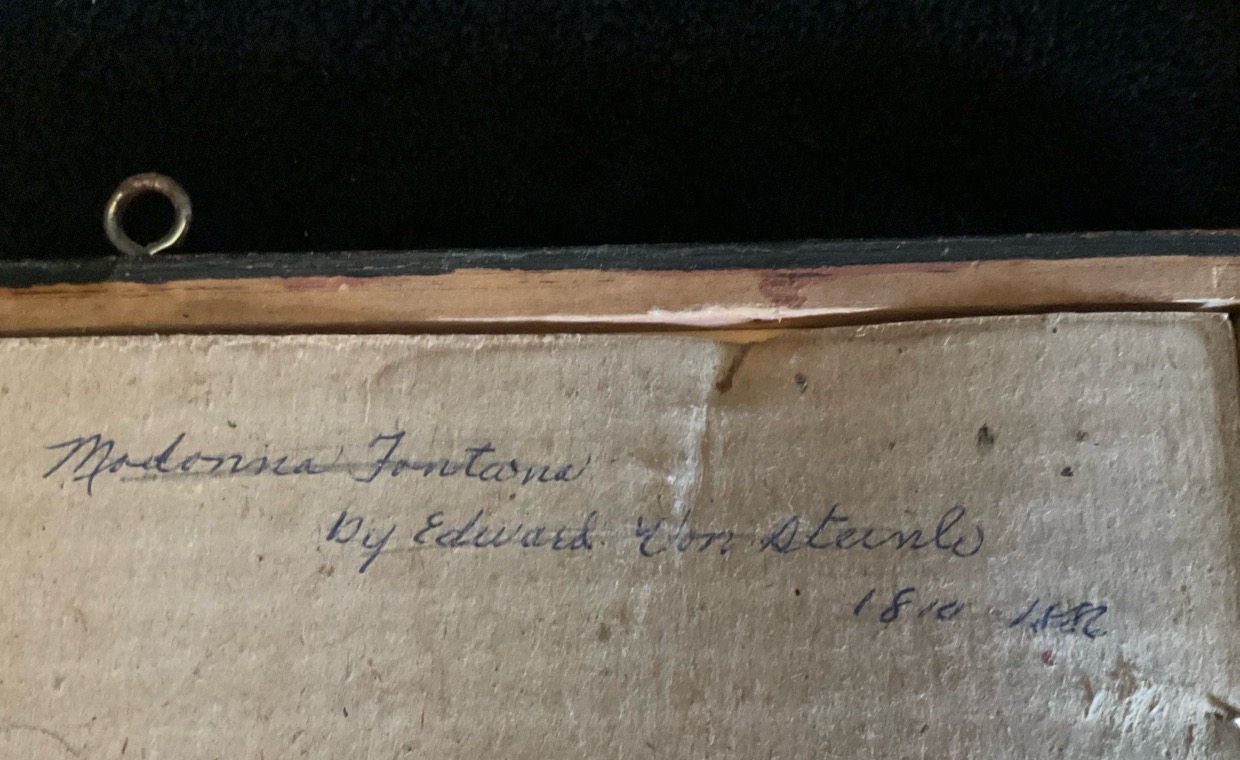 Madonna Fontana
by Edward Von Steinle
1810 - 1886